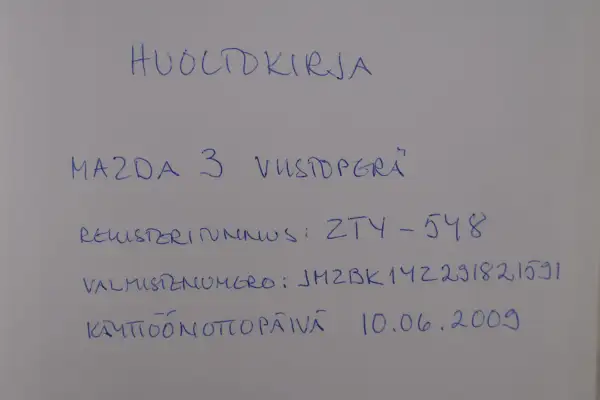 HUOLTOKIRJA
MAZDA 3 VIISTOPERÄ
REKISTERITUNNUS: ZTY - 548
VALMISTENUMERO: JMZBK14Z291821591
KÄYTTÖÖNOTTOPÄIVÄ 10.06.2009